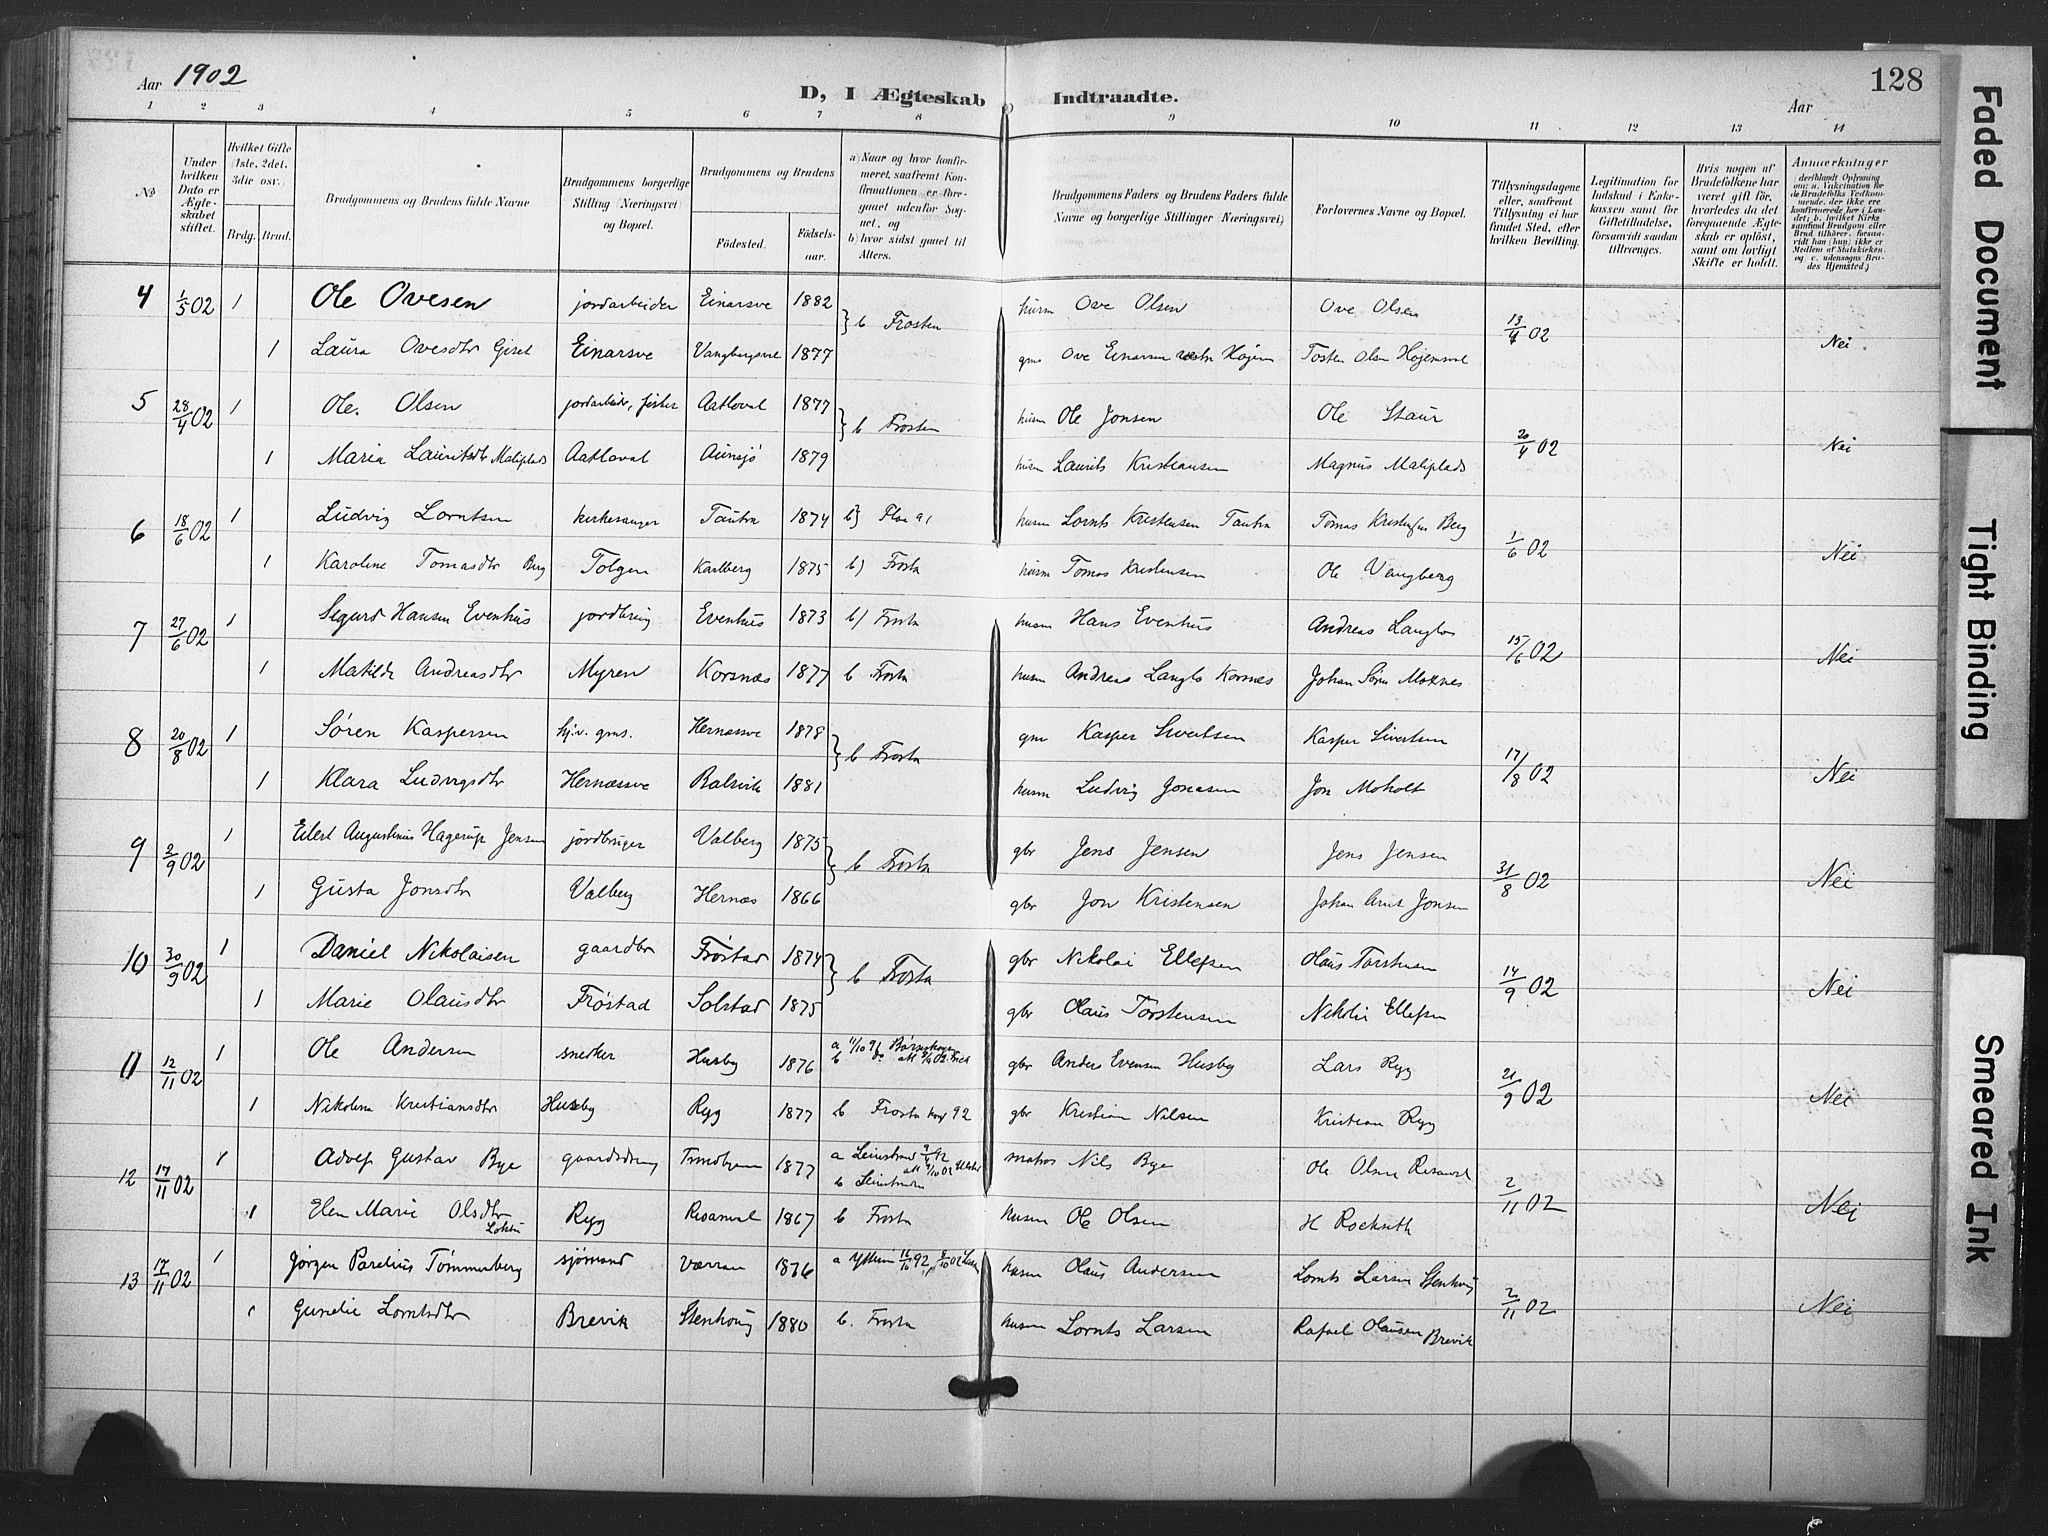 Aar 1902
D, I Ægteskab Indtraadte.
128
Aar
1 2 3 4 5 6 7 8 9 10 11 12 13 14
No
Under hvilken Dato er Ægteskabet stiftet.
Hvilket Gifte (1ste, 2det, 3die osv.)
Brdg. Brud.
Brudgommens og Brudens fulde Navne
Brudgommens borgerlige Stilling (Næringsvei) og Bopæl.
Brudgommens og Brudens
Fødested.
Fødselsaar.
a) Naar og hvor konfirmeret, saafremt Konfirmationen er foregaaet udenfor Sognet, og
b) hvor sidst gaaet til Alters.
Brudgommens Faders og Brudens Faders fulde Navne og borgerlige Stillinger (Næringsvei)
Forlovernes Navne og Bopæl.
Tillysningsdagene eller, saafremt Tillysning ei har fundet Sted, efter hvilken Bevilling.
Legitimation for Indskud i Enkekassen samt for Giftetilladelse, forsaavidt saadan tiltrænges.
Hvis nogen af Brudefolkene har været gift før, hvorledes da det foregaaende Ægteskab er opløst, samt om lovligt Skifte er holdt.
Anmærkninger
4 1/5 02 1 Ole Ovesen jordarbeider Einarsve 1882 } b Frosten husm Ove Olsen Ove Olsen 13/4 02 Nei
1 Laura Ovesdtr Giset Einarsve Vangbergsve 1877 gms Ove Einarsen Tosten Olsen Højemsve
5 28/4 02 1 Ole Olsen jordarbeid, fisker Aatloval 1877 } b Frosten husm Ole Jonsen Ole Staur 20/4 02 Nei
1 Maria Lauritsdtr Maliplads Aatloval Aunsjø 1879 husm Laurits Kristiansen Magnus Maliplads
6 18/6 02 1 Ludvig Lorntsen kirkesanger Tautra 1874 b) husm Lornts Kristensen Tautra Tomas Kristensen Berg 1/6 02 Nei
1 Karoline Tomasdtr Berg Tolgen Karlberg 1875 b) Frosta husm Tomas Kristensen Ole Vangberg
7 27/6 02 1 Sigurd Hansen Evenhus jordbrug Evenhus 1873 b) Frosta husm Hans Evenhus Andreas Langlo 15/6 02 Nei
1 Matilde Andreasdtr Myren Korsnæs 1877 b Frosta husm Andreas Langlo Korsnes Johan Søren Moxnes
8 20/8 02 1 Søren Kaspersen hj.v. gms. Hernæsve 1878 } b Frosta gm Kasper Sivertsen Kasper Sivertsen 17/8 02 Nei
1 Klara Ludvigsdtr Hernæsve Balsvik 1881 husm Ludvig Jonasen Jon Moholt
9 2/9 02 1 Eilert Augustinus Hagerup Jensen jordbruger Valberg 1875 } b Frosta gbr Jens Jensen Jens Jensen 31/8 02 Nei
1 Gusta Jonsdtr Valberg Hernæs 1866 gbr Jon Kristensen Johan Arnt Jonsen
10 30/9 02 1 Daniel Nikolaisen gaardbr Frøstad 1874 } b Frosta gbr Nikolai Ellefsen Olaus Torstensen 14/9 02 Nei
1 Marie Olausdtr Frøstad Solstad 1875 gbr Olaus Torstensen Nikolai Ellefsen
11 12/11 02 1 Ole Andersen snedker Husby 1876 a 11/10 91 b gbr Anders Evensen Husby Lars Ryg 21/9 02 Nei
1 Nikolina Kristiansdtr Husby Ryg 1877 b Frosta konf 92 gbr Kristian Nilsen Kristian Ryg
12 17/11 02 1 Adolf Gustav Bye gaardsdreng Trondhjem 1877 a Leinstrand b Leinstranden matros Nils Bye Ole Olsen Risanvel 2/11 02 Nei
1 Elen Marie Olsdtr Ryg Risanval 1867 b Frosta husm Ole Olsen H Rockseth
13 17/11 02 1 Jørgen Parelius Tømmerberg sjømand Værran 1876 a Ytterø husm Olaus Andersen Lornts Larsen Stenhoug 2/11 02 Nei
1 Gunelie Lorntsdtr Brevik Stenhoug 1880 b. Frosta husm Lornts Larsen Rafael Olausen Brevik
Faded Document
Tight Binding
Smeared Ink